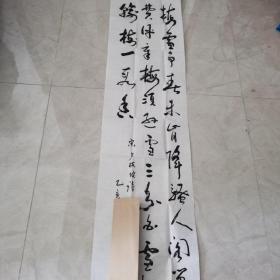 梅雪争春未肯降骚人阁
费评章梅须逊雪三分白雪
输梅一段香
宋卢梅坡诗